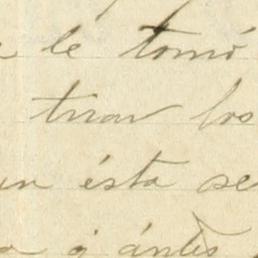 le tomó
tirar los
un ésta se
a q ántes